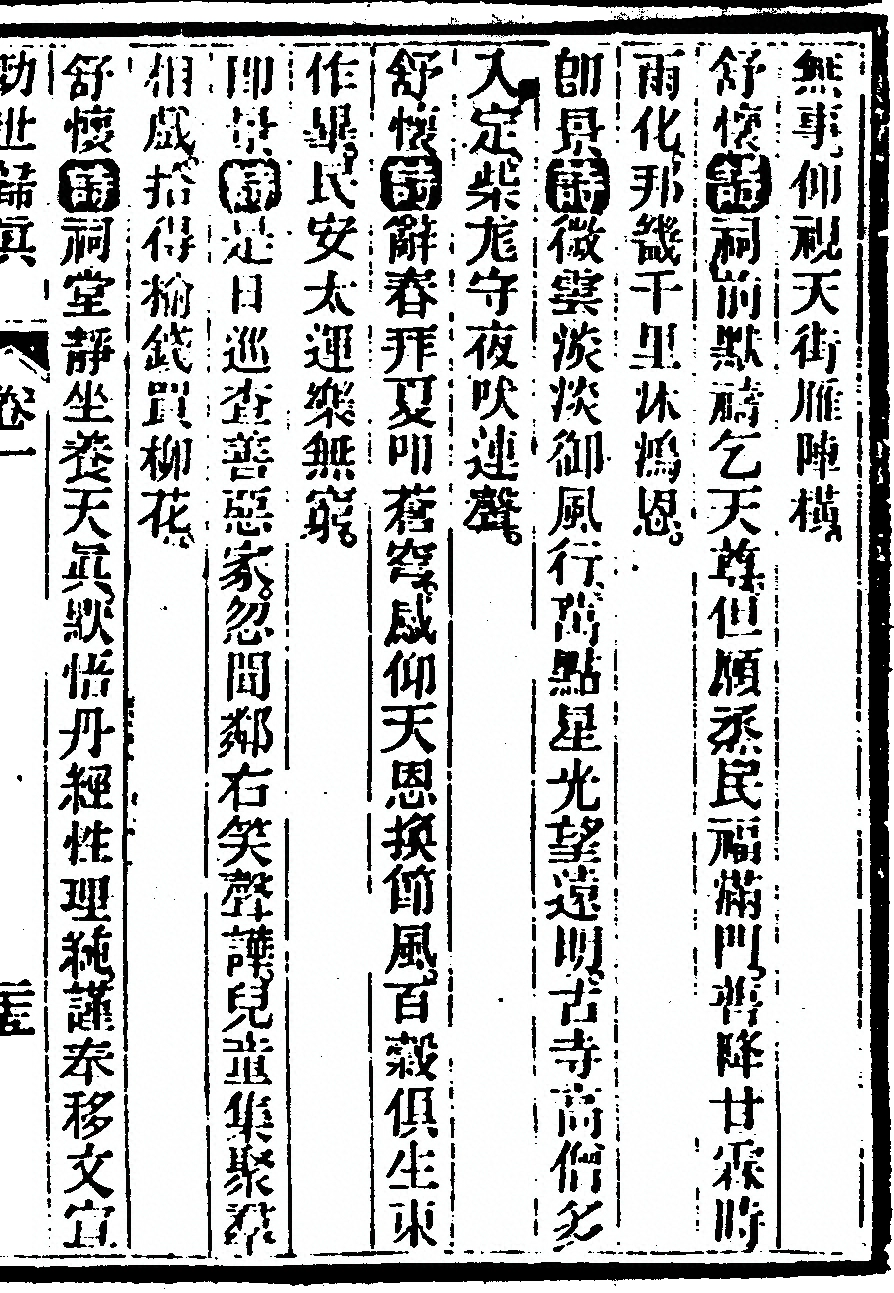 無事仰視天街雁陣橫
舒懷詩祠前默禱乞天尊但願烝民福滿門普降甘霖時
雨化邦畿千里沐鴻恩
卽景詩微雲淡淡御風行萬點星光望遠明古寺高僧多
入定柴尨守夜吠連聲
舒懷詩辭春拜夏叩蒼穹感仰天恩換節風百穀俱生東
作畢民安太運樂無窮
卽景詩是日巡查善惡家忽聞鄰右笑聲譁兒童集聚羣
相戲拾得榆錢買柳花
舒懷詩祠堂靜坐養天眞默悟丹經性理純謹奉移文宣
勸世歸眞 卷一